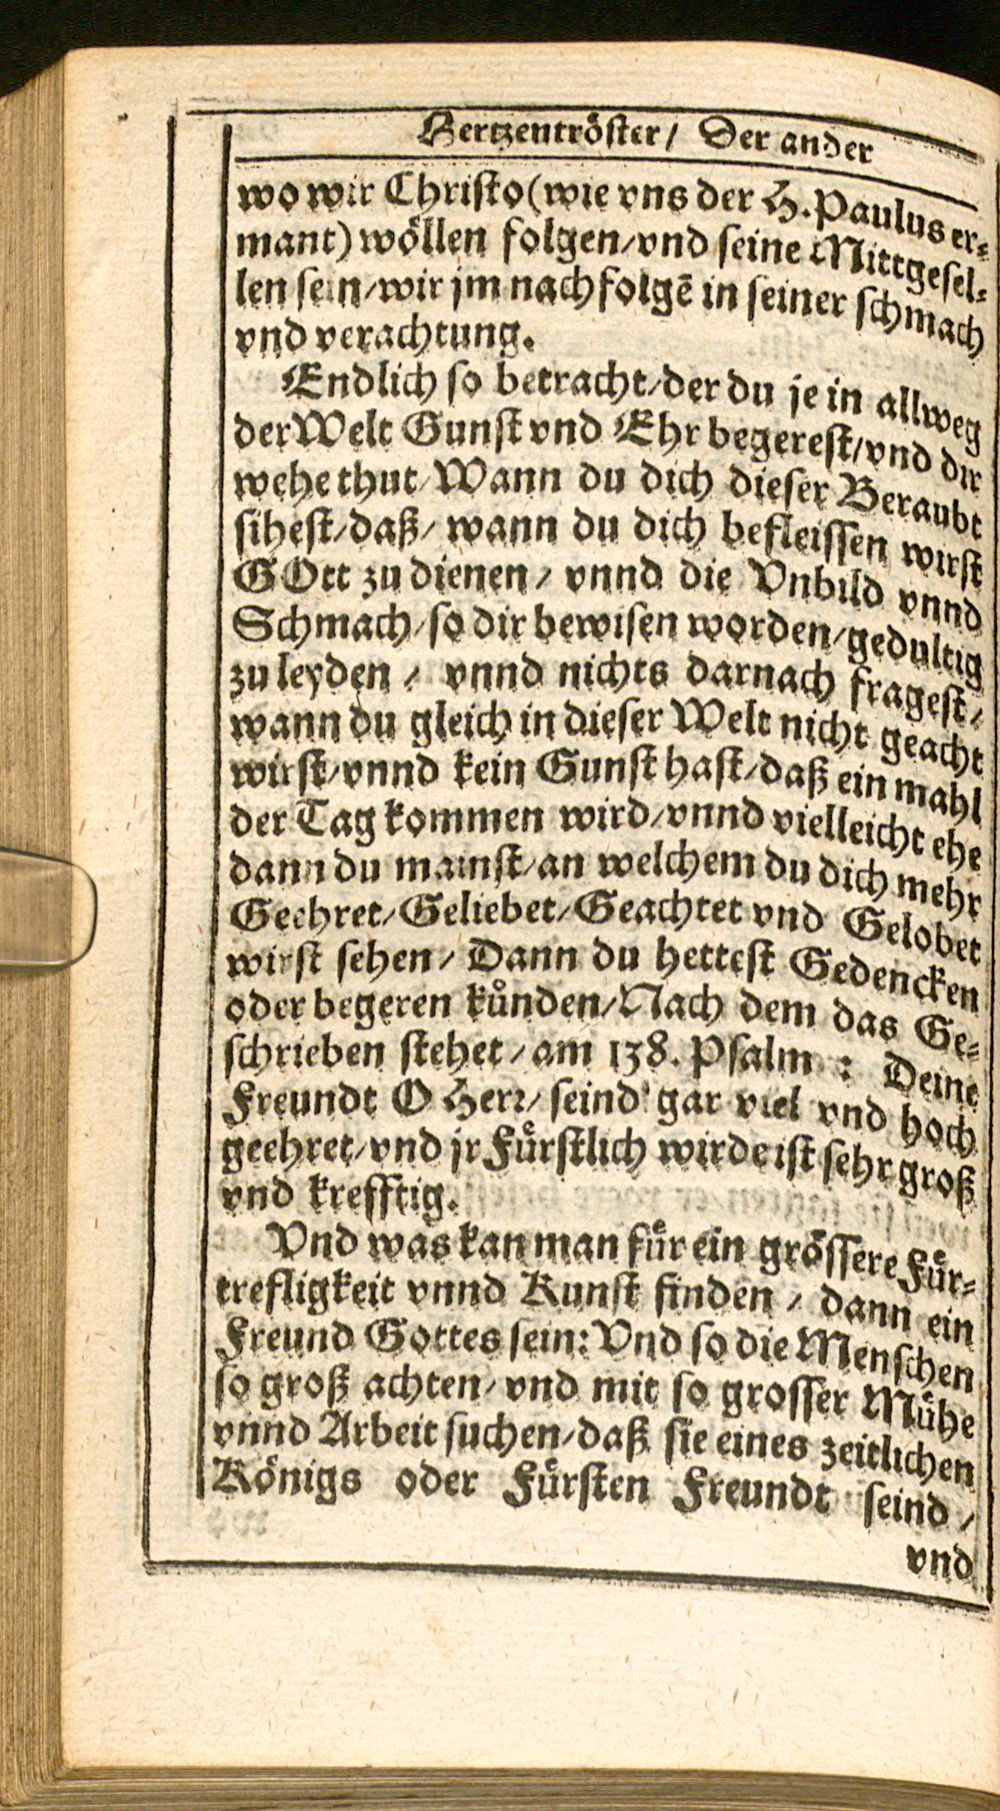 Hertzentröster / Der ander
wo wir Christo (wie vns der H. Paulus er-
mant) wöllen folgen / vnd seine Mittgesel-
len sein / wir jm nachfolgē in seiner schmach
vnd verachtung.
Endlich so betracht / der du je in allweg
der Welt Gunst vnd Ehr begerest / vnd dir
wehe thut / Wann du dich dieser Beraubt
sihest / daß / wann du dich befleissen wirst
GOtt zu dienen / vnnd die Vnbild vnnd
Schmach / so dir bewisen worden / gedultig
zu leyden / vnnd nichts darnach fragest /
wann du gleich in dieser Welt nicht geacht
wirst / vnnd kein Gunst hast / daß ein mahl
der Tag kommen wird / vnnd vielleicht ehe
dann du mainst / an welchem du dich mehr
Geehret / Geliebet / Geachtet vnd Gelobet
wirst sehen / Dann du hettest Gedencken
oder begeren kůnden / Nach dem das Ge-
schrieben stehet / am 138. Psalm : Deine
Freundt O Herr / seind gar viel vnd hoch
geehret / vnd jr Fürstlich wirde ist sehr groß
vnd krefftig.
Vnd was kan man für ein grössere Für-
trefligkeit vnnd Kunst finden / dann ein
Freund Gottes sein: Vnd so die Menschen
so groß achten / vnd mit so grosser Mühe
vnnd Arbeit suchen / daß sie eines zeitlichen
Königs oder Fürsten Freundt seind /
vnd